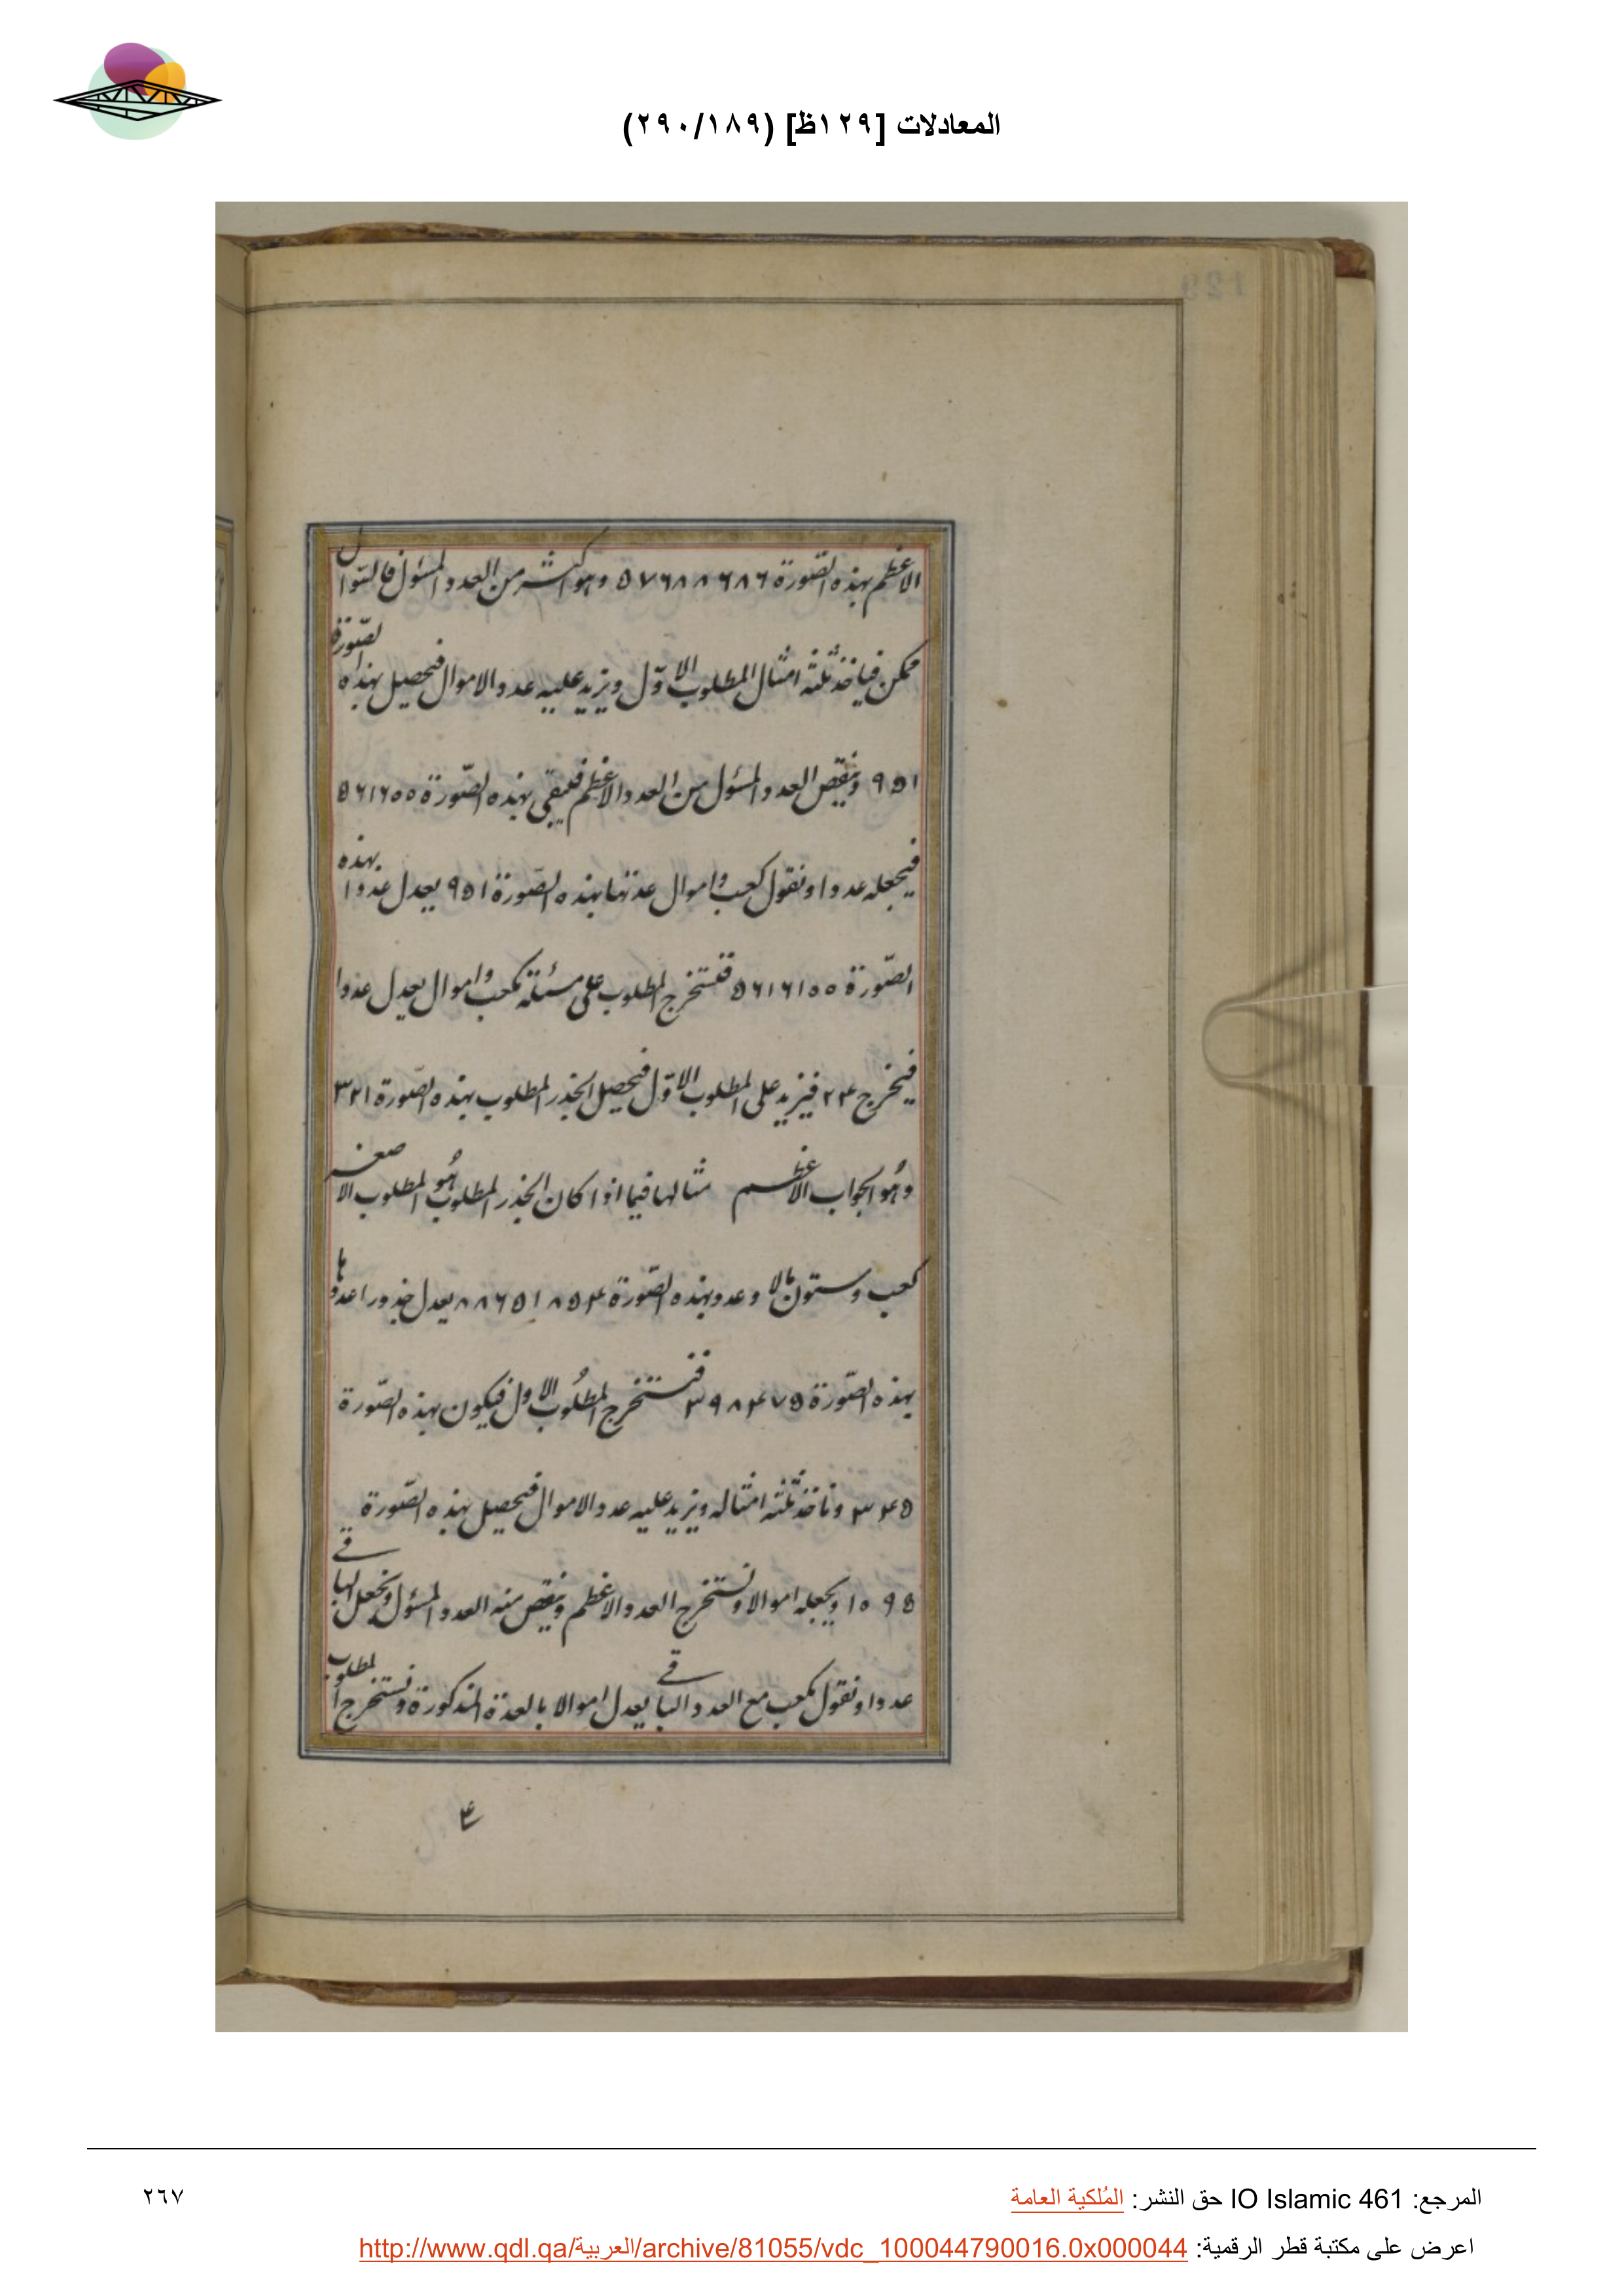 المعادلات [١٢٩ظ] (٢٩٠/١٨٩)
الاعظم بهذه الصّورة ٥٧٦٨٨٦٨٦ وهو اكثر من العدد المسئول فالسّوال
ممكن فياخذ ثلثة امثال المطلوب الاوّل ويزيد عليه عدد الاموال فيحصل بهذه الصّورة
٩٥١ وينقص العدد المسئول من العدد الاعظم فيبقى بهذه الصّورة ٥٦١٦٠٥٥
فيجعله عددا ونقول كعب واموال عدتها بهذه الصّورة ٩٥١ يعدل عددا بهذه
الصّورة ٥٦١٦١٥٥ فنستخرج المطلوب على مسئلة كعب واموال يعدل عددا
فيخرج ٢٤ فيزيد على المطلوب الاوّل فيحصل الجذر المطلوب بهذه الصّورة ٣٢١
وهُو الجواب الاعظم مثالها فيما اذا كان الجذر المطلوب هُو المطلوب الاصغر
كعب وستون مالا وعدد بهذه الصّورة ٨٨٦٥١٨٥٤ يعدل جذورا عددها
بهذه الصّورة ٣٩٨٤٧٥ فنستخرج المطلُوب الاول فيكون بهذه الصّورة
٣٤٥ وناخذ ثلثة امثاله ويزيد عليه عدد الاموال فيحصل بهذه الصّورة
١٠٩٥ ويجعله اموالا ونستخرج العدد الاعظم وينقص منه العدد المسئول ونجعل الباقي
عددا ونقول كعب مع العدد الباقي يعدل اموالا بالعدة المذكورة ونستخرج المطلوب
١٢٩
٢٦٧
المرجع: IO Islamic 461 حق النشر: المُلكية العامة
اعرض على مكتبة قطر الرقمية: http://www.qdl.qa/العربية/archive/81055/vdc_100044790016.0x000044